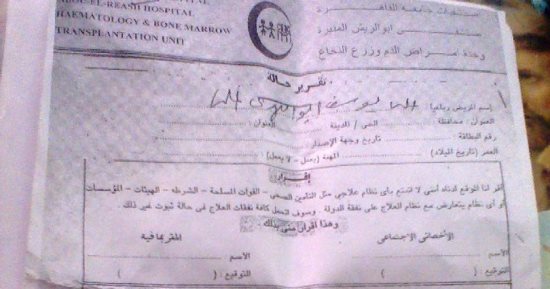 REASH HOSPITAL
HAEMATOLOGY & BONE MARROW
TRANSPLANTATION UNIT
مستشفيات جامعة القاهرة
مستشفى ابو الريش المنيرة
وحدة امراض الدم وزرع النخاع
تقرير حالة
إسم المريض رباعيا
العنوان: محافظة الحى / المدينة العنوان:
رقم البطاقة تاريخ وجهة الإصدار
العمر (تاريخ الميلاد) المهنة (يعمل - لا يعمل)
إقرار
أقر أنا الموقع أدناه أننى لا أتمتع بأى نظام علاجى مثل التأمين الصحى - القوات المسلحة - الشرطة - الهيئات - المؤسسات
أو أى نظام يتعارض مع نظام العلاج على نفقة الدولة وسوف أتحمل كافة نفقات العلاج فى حالة ثبوت غير ذلك.
وهذا إقرار منى بذلك
الأخصائى الإجتماعى المقر بما فيه
الاسم الاسم
التوقيع: ( ) التوقيع: ( )